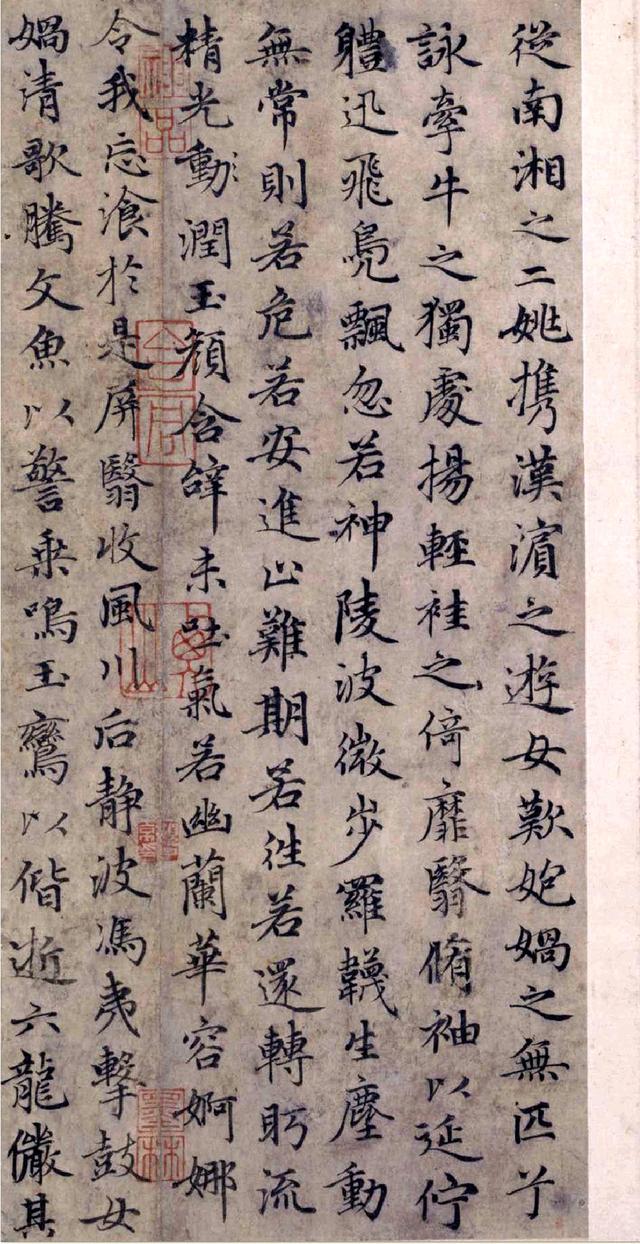 從南湘之二姚携漢濵之遊女歎姽媧之無匹兮
詠牽牛之獨處揚輕袿之倚靡翳脩袖以延佇
軆迅飛鳧飄忽若神陵波微步羅韈生塵動
無常則若危若安進止難期若往若還轉眄流
精光動潤玉顏含辝未吐氣若幽蘭華容婀娜
令我忘飡於是屏翳收風川后静波馮夷擊鼓女
媧清歌騰文魚以警乘鳴玉鸞以偕逝六龍儼其
神品
墨林